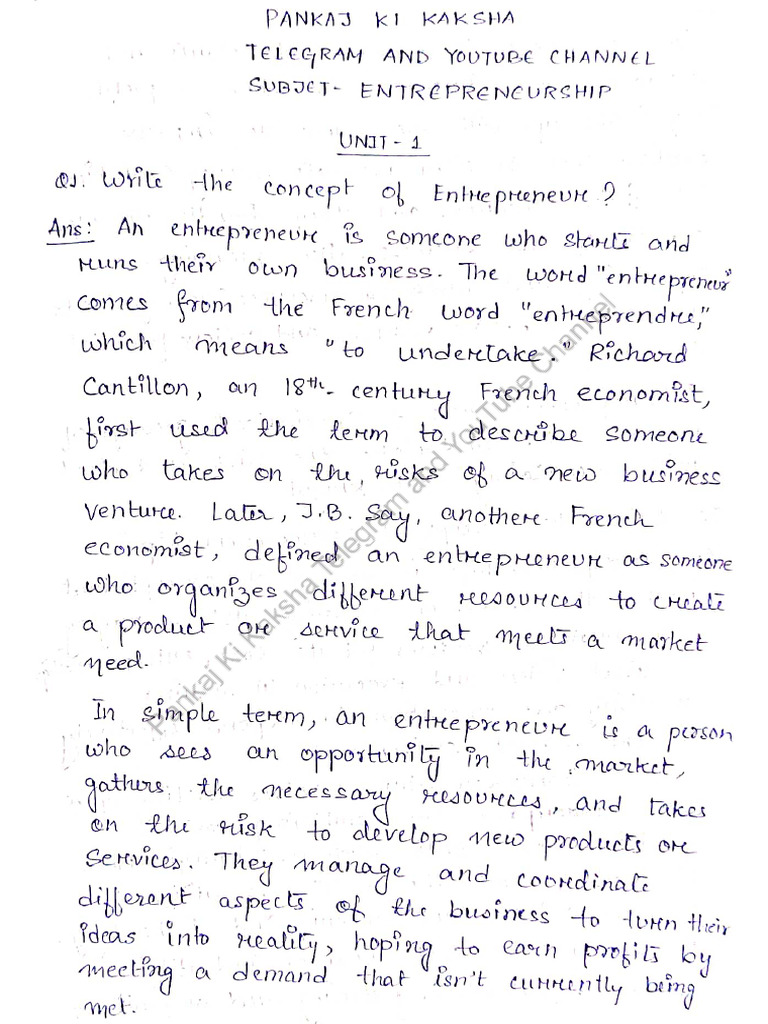 PANKAJ KI KAKSHA
TELEGRAM AND YOUTUBE CHANNEL
SUBJET- ENTREPRENEURSHIP
UNIT-1
Q1. Write the concept of Entrepreneur?
Ans: An entrepreneur is someone who starts and
runs their own business. The word "entrepreneur"
comes from the French word "entreprendre,"
which means "to undertake." Richard
Cantillon, an 18th-century French economist,
first used the term to describe someone
who takes on the risks of a new business
venture. Later, J.B. Say, another French
economist, defined an entrepreneur as someone
who organizes different resources to create
a product or service that meets a market
need.
In simple term, an entrepreneur is a person
who sees an opportunity in the market,
gathers the necessary resources, and takes
on the risk to develop new products or
services. They manage and coordinate
different aspects of the business to turn their
ideas into reality, hoping to earn profits by
meeting a demand that isn't currently being
met.
Pankaj Ki Kaksha Telegram and YouTube Channel